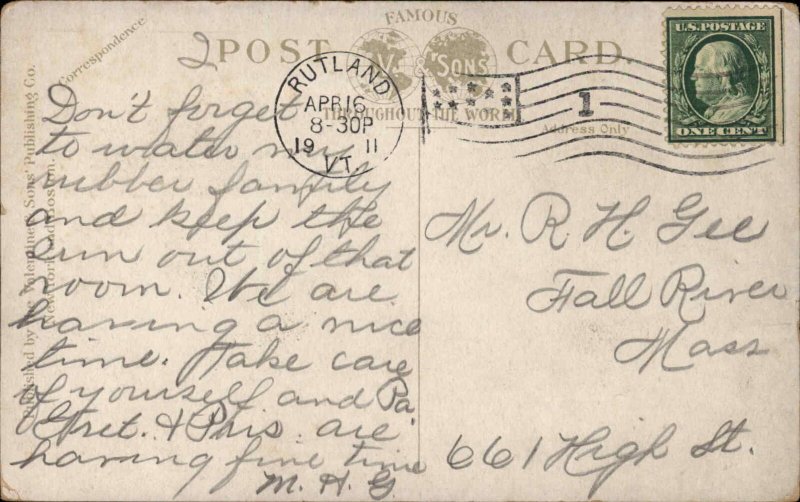 2
FAMOUS
POST CARD.
V. & SONS
THROUGHOUT THE WORLD
Correspondence
Address Only
Published by The Valentine & Sons' Publishing Co.
New York and Boston.
RUTLAND
APR 16
8-30P
19 11
VT.
1
U.S. POSTAGE
ONE CENT
Don't forget
to water my
rubber family
and keep the
sun out of that
room. We are
having a nice
time. Take care
of yourself and Pa
Gret. & Pris. are
having fine time
M. H. G
Mr. R. H. Gee
Fall River
Mass
661 High St.